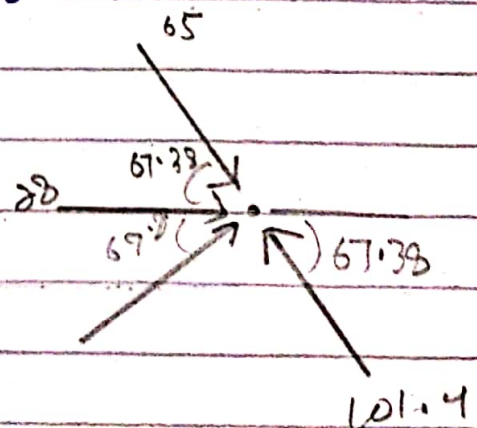 65
67.38
28
67.8
67.38
101.4